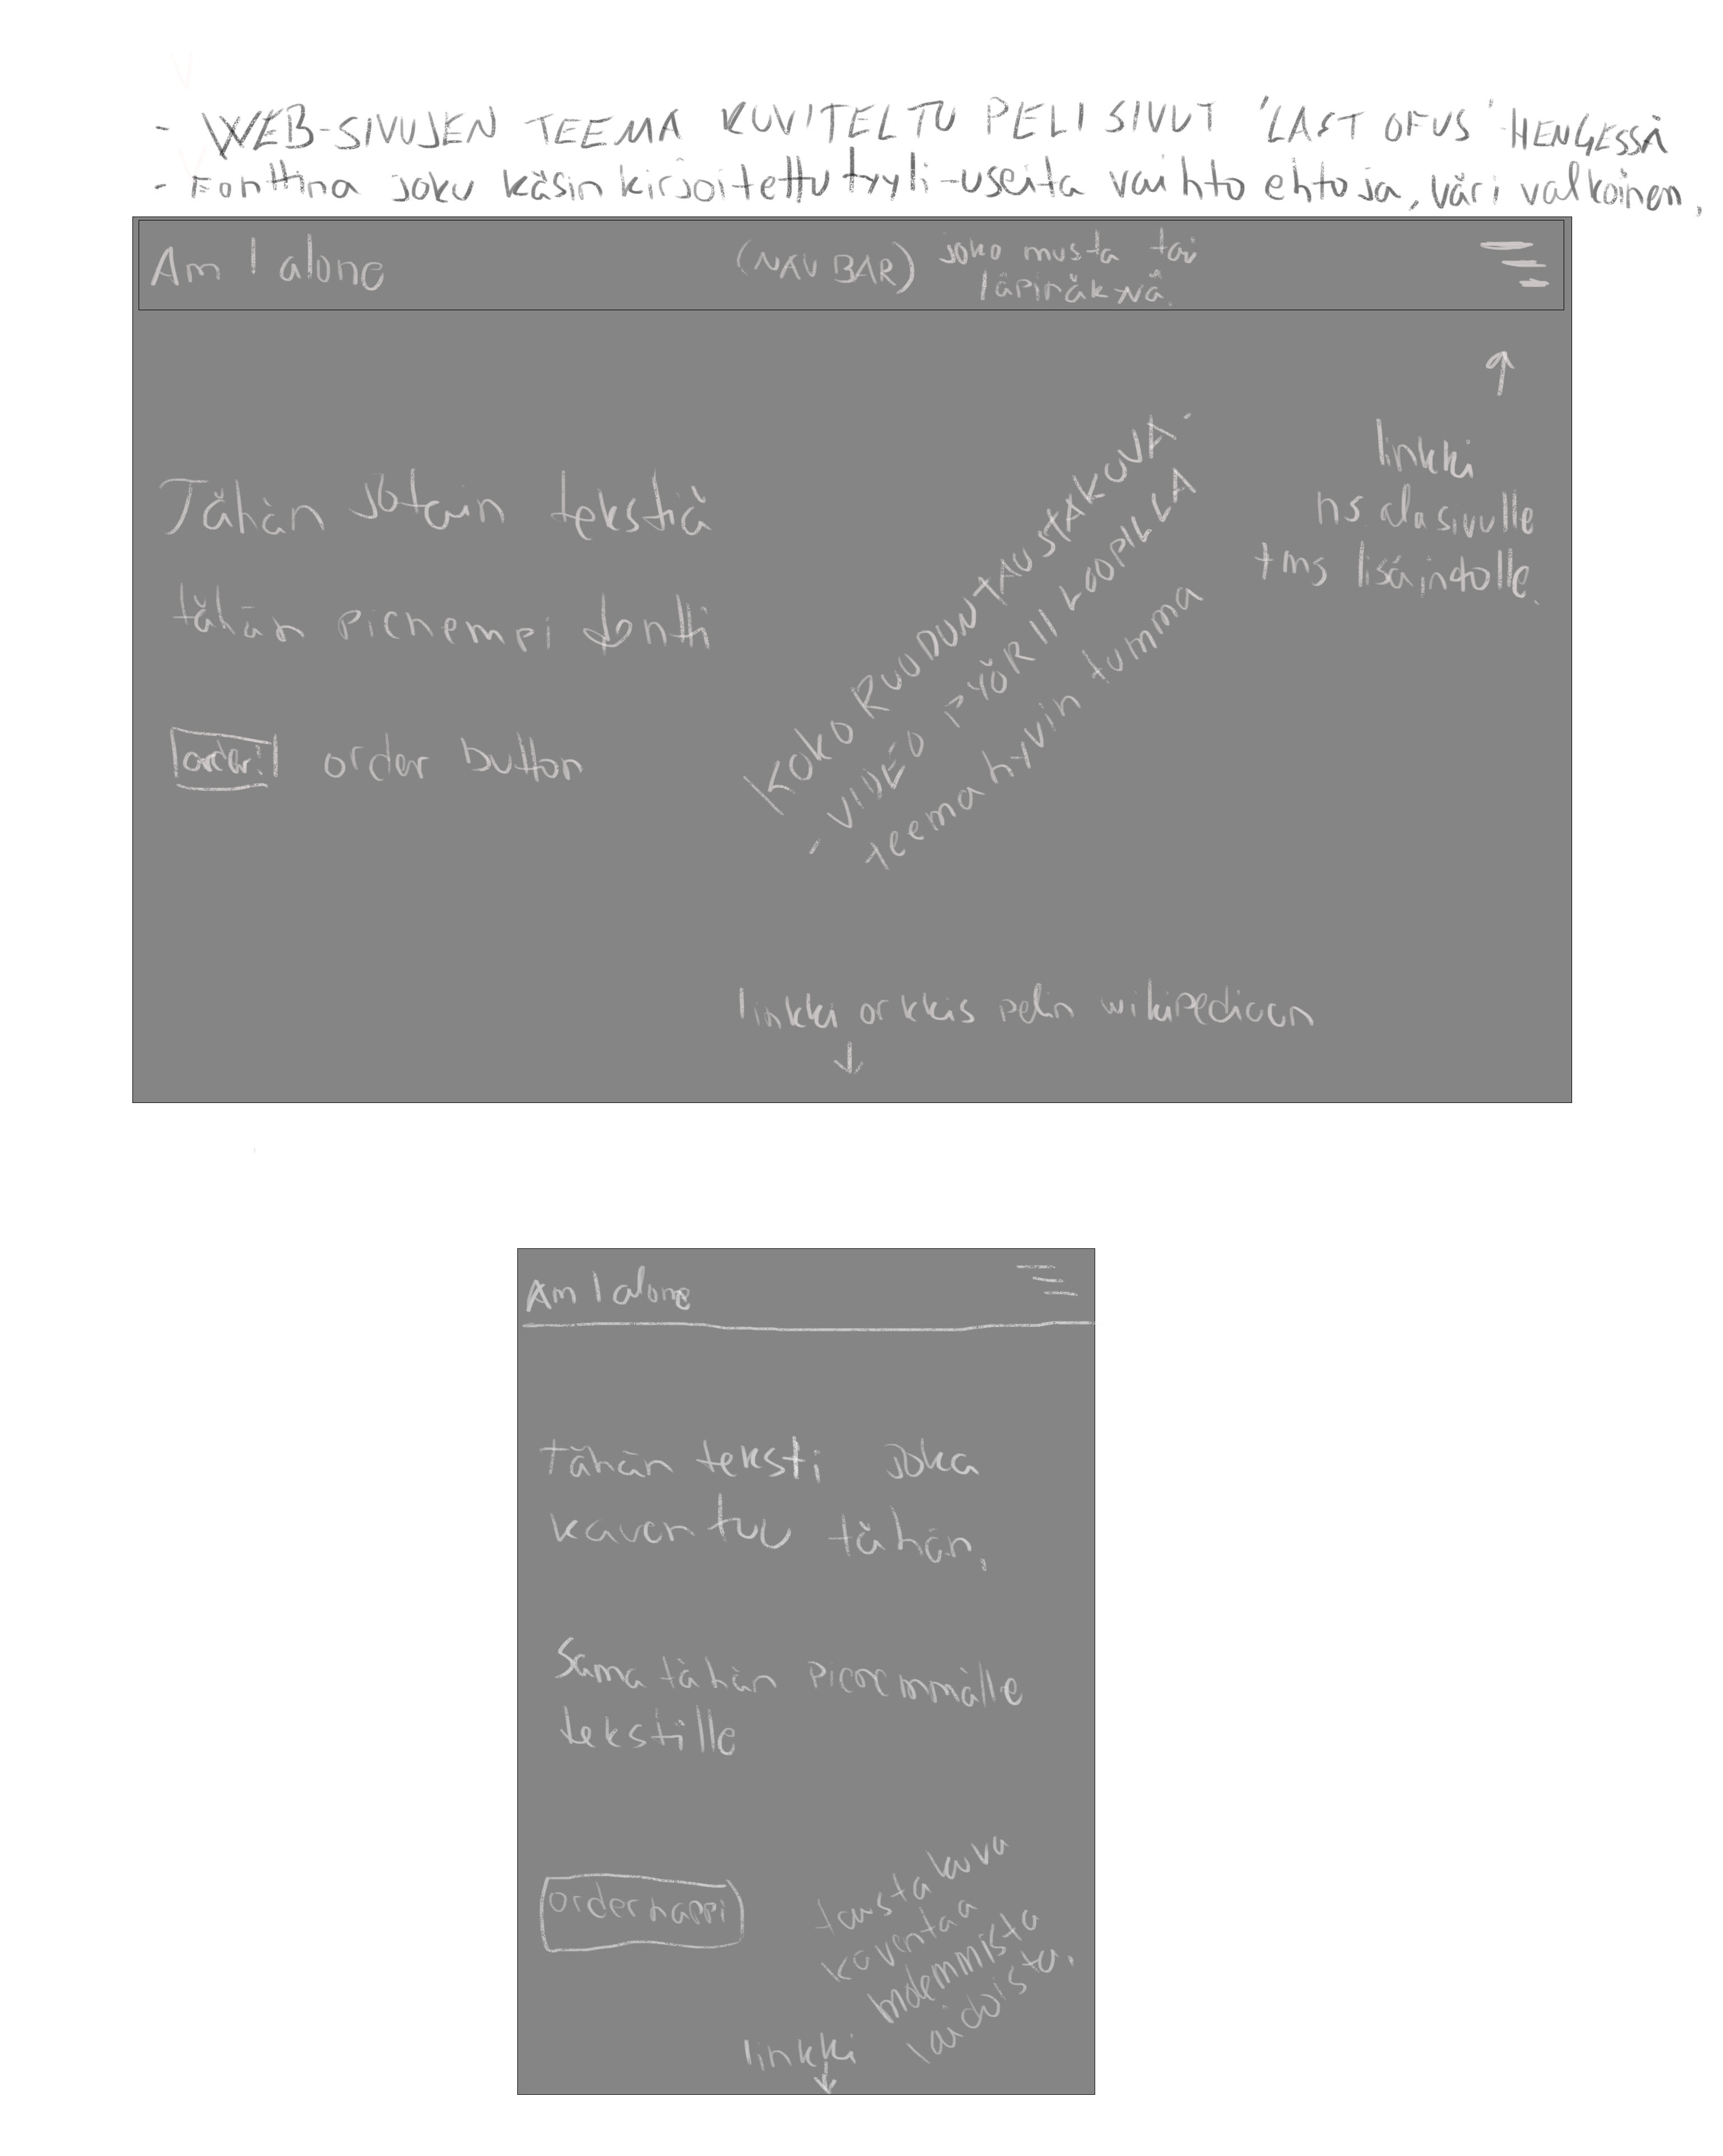 - WEB-SIVUJEN TEEMA KUVITELTU PELISIVUT 'LAST OF US' HENGESSÄ
- Fonttina joku käsinkirjoitettu tyyli-useita vaihto ehtoja, väri valkoinen,
Am I alone
(NAV BAR) joko musta tai
läpinäkyvä.
↑
linkki
ns. alasivulle
tms lisäinfolle.
Tähän jotain tekstiä
tähän pienempi fontti
order! order button
KOKO RUUDUN TAUSTAKUVA.
- VIDEO PYÖRII LOOPILLA
teema hyvin tumma
linkki orkkis pelin wikipediaan
↓
Am I alone
Tähän teksti joka
kaventuu tähän.
Sama tähän pienemmälle
tekstille
order nappi
taustakuva
kaventaa
molemmista
laidoista.
linkki
↓